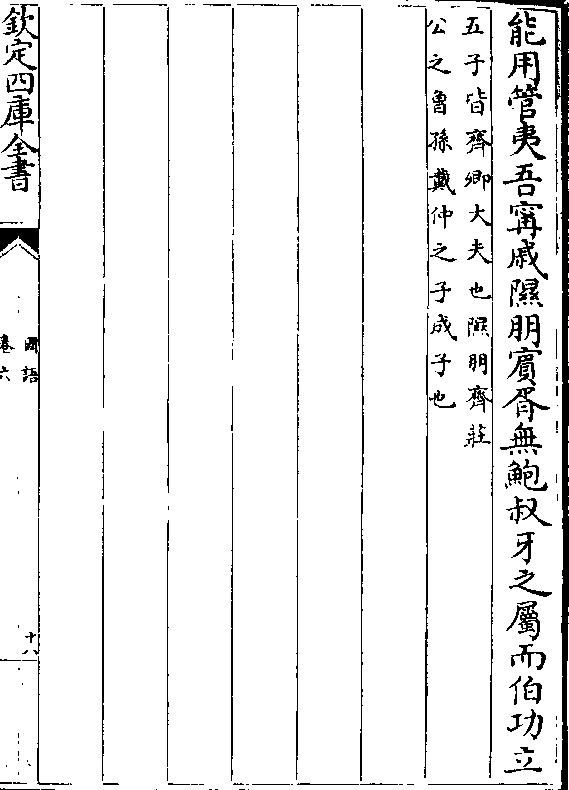 能用管夷吾甯戚隰朋賓胥無鮑叔牙之屬而伯功立
五子皆齊卿大夫也隰朋齊莊
公之曾孫戴仲之子成子也
欽定四庫全書
國語
卷六
十八